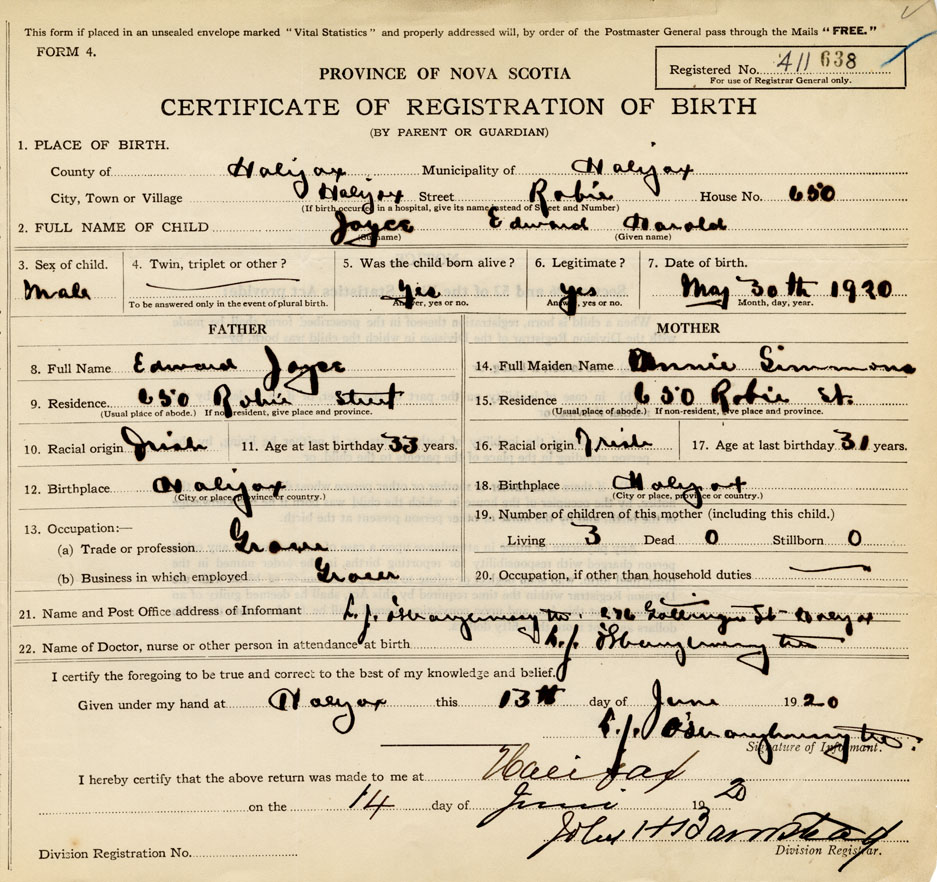 This form if placed in an unsealed envelope marked "Vital Statistics" and properly addressed will, by order of the Postmaster General pass through the Mails "FREE."
FORM 4.
Registered No. 411 638
For use of Registrar General only.
PROVINCE OF NOVA SCOTIA
CERTIFICATE OF REGISTRATION OF BIRTH
(BY PARENT OR GUARDIAN)
1. PLACE OF BIRTH.
County of Halifax Municipality of Halifax
City, Town or Village Halifax Street Robie House No. 650
(If birth occurred in a hospital, give its name instead of Street and Number)
2. FULL NAME OF CHILD Joyce Edward Harold
(Surname) (Given name)
3. Sex of child. 4. Twin, triplet or other? 5. Was the child born alive? 6. Legitimate? 7. Date of birth.
Male Yes Yes May 30th 1920
To be answered only in the event of plural birth. Answer, yes or no. Answer, yes or no. Month, day, year.
FATHER MOTHER
8. Full Name Edward Joyce 14. Full Maiden Name Annie Simmons
9. Residence 650 Robie Street 15. Residence 650 Robie St.
(Usual place of abode.) If non-resident, give place and province. (Usual place of abode.) If non-resident, give place and province.
10. Racial origin Irish 11. Age at last birthday 33 years. 16. Racial origin Irish 17. Age at last birthday 31 years.
12. Birthplace Halifax 18. Birthplace Halifax
(City or place, province or country.) (City or place, province or country.)
19. Number of children of this mother (including this child.)
13. Occupation:—
(a) Trade or profession Grocer Living 3 Dead 0 Stillborn 0
(b) Business in which employed Grocer 20. Occupation, if other than household duties
21. Name and Post Office address of Informant L. J. 276 Gottingen St - Halifax
22. Name of Doctor, nurse or other person in attendance at birth L. J.
I certify the foregoing to be true and correct to the best of my knowledge and belief.
Given under my hand at Halifax this 13th day of June 1920
L. J.
Signature of Informant.
I hereby certify that the above return was made to me at Halifax
on the 14 day of June 1920
John H Barnstead
Division Registration No. Division Registrar.